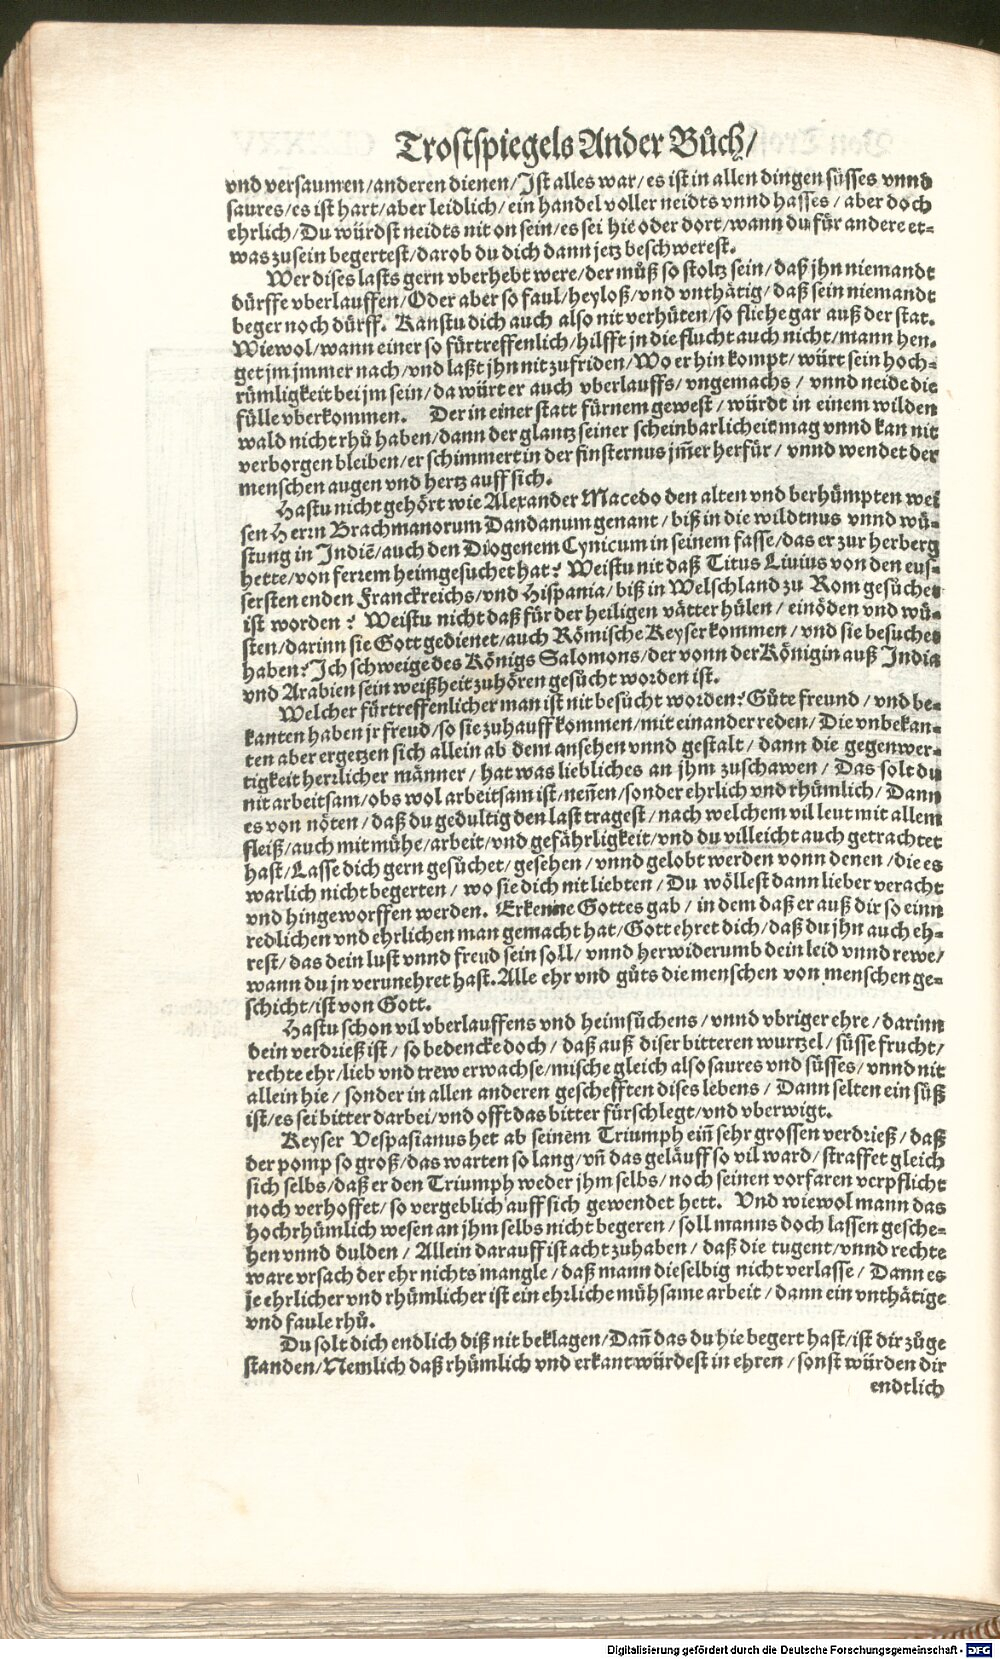 Trostspiegels Ander Bůch/
vnd versaumen/anderen dienen/Jst alles war/es ist in allen dingen süsses vnnd
saures/es ist hart/aber leidlich/ein handel voller neidts vnnd hasses/aber doch
ehrlich/Du würdst neidts nit on sein/es sei hie oder dort/wann du für andere et=
was zu sein begertest/darob du dich dann jetz beschwerest.
Wer dises lasts gern vberhebt were/der můß so stoltz sein/daß jhn niemandt
dürffe vberlauffen/Oder aber so faul/heyloß/vnd vnthätig/daß sein niemandt
beger noch dürff. Kanstu dich auch also nit verhüten/so fliehe gar auß der stat.
Wiewol/wann einer so fürtreffenlich/hilfft jn die flucht auch nicht/mann hen=
get jm jmmer nach/vnd laßt jhn nit zufriden/Wo er hin kompt/würt sein hoch=
rümligkeit bei jm sein/da würt er auch vberlauffs/vngemachs/vnnd neide die
fülle vberkommen. Der in einer statt fürnem gewest/würdt in einem wilden
wald nicht rhů haben/dann der glantz seiner scheinbarlicheit mag vnnd kan nit
verborgen bleiben/er schimmert in der finsternus jm̃er herfür/vnnd wendet der
menschen augen vnd hertz auff sich.
Hastu nicht gehört wie Alexander Macedo den alten vnd berhümpten wei
sen Herrn Brachmanorum Dandanum genant/biß in die wildtnus vnnd wü=
stung in Jndiẽ/auch den Diogenem Cynicum in seinem fasse/das er zur herberg
hette/von ferrem heimgesuchet hat? Weistu nit daß Titus Liuius von den eus=
sersten enden Franckreichs/vnd Hispania/biß in Welschland zu Rom gesůchet
ist worden? Weistu nicht daß für der heiligen vätter hülen/einöden vnd wü=
sten/darinn sie Gott gedienet/auch Römische Keyser kommen/vnd sie besuchet
haben? Jch schweige des Königs Salomons/der vonn der Königin auß Jndia
vnd Arabien sein weißheit zuhören gesücht worden ist.
Welcher fürtreffenlicher man ist nit besücht worden? Gůte freund/vnd be=
kanten haben jr freud/so sie zuhauff kommen/mit einander reden/Die vnbekan=
ten aber ergetzen sich allein ab dem ansehen vnnd gestalt/dann die gegenwer=
tigkeit herrlicher männer/hat was liebliches an jhm zuschawen/Das solt du
nit arbeitsam/obs wol arbeitsam ist/neñen/sonder ehrlich vnd rhümlich/Dann
es von nöten/daß du gedultig den last tragest/nach welchem vil leut mit allem
fleiß/auch mit mühe/arbeit/vnd gefährligkeit/vnd du villeicht auch getrachtet
hast/Lasse dich gern gesůchet/gesehen/vnnd gelobt werden vonn denen/die es
warlich nicht begerten/wo sie dich nit liebten/Du wöllest dann lieber veracht
vnd hingeworffen werden. Erkenne Gottes gab/in dem daß er auß dir so einn
redlichen vnd ehrlichen man gemacht hat/Gott ehret dich/daß du jhn auch eh=
rest/das dein lust vnnd freud sein soll/vnnd herwiderumb dein leid vnnd rewe/
wann du jn verunehret hast. Alle ehr vnd gůts die menschen von menschen ge=
schicht/ist von Gott.
Hastu schon vil vberlauffens vnd heimsůchens/vnnd vbriger ehre/darinn
dein verdrieß ist/so bedencke doch/daß auß diser bitteren wurtzel/süsse frucht/
rechte ehr/lieb vnd trew erwachse/mische gleich also saures vnd süsses/vnnd nit
allein hie/sonder in allen anderen geschefften dises lebens/Dann selten ein süß
ist/es sei bitter darbei/vnd offt das bitter fürschlegt/vnd vberwigt.
Keyser Vespasianus het ab seinem Triumph eiñ sehr grossen verdrieß/daß
der pomp so groß/das warten so lang/vñ das geläuff so vil ward/straffet gleich
sich selbs/daß er den Triumph weder jhm selbs/noch seinen vorfaren verpflicht
noch verhoffet/so vergeblich auff sich gewendet hett. Vnd wiewol mann das
hochrhümlich wesen an jhm selbs nicht begeren/soll manns doch lassen gesche=
hen vnnd dulden/Allein darauff ist acht zuhaben/daß die tugent/vnnd rechte
ware vrsach der ehr nichts mangle/daß mann dieselbig nicht verlasse/Dann es
je ehrlicher vnd rhümlicher ist ein ehrliche mühsame arbeit/dann ein vnthätige
vnd faule rhů.
Du solt dich endlich diß nit beklagen/Dañ das du hie begert hast/ist dir zůge
standen/Nemlich daß rhümlich vnd erkant würdest in ehren/sonst würden dir
endtlich
Digitalisierung gefördert durch die Deutsche Forschungsgemeinschaft - DFG